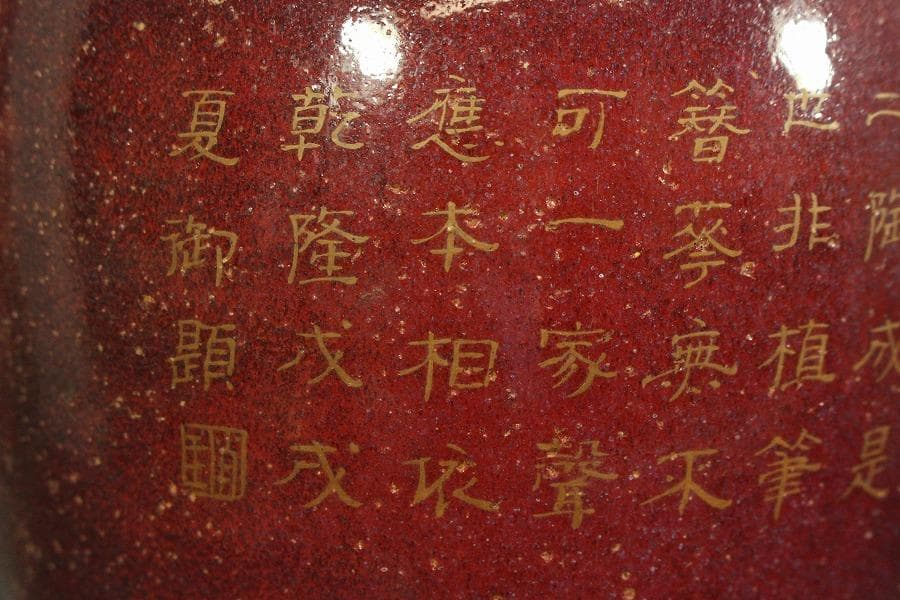 陶成是
世非植筆
簪無不
可一家聲
應本相依
乾隆戊戌
夏御題